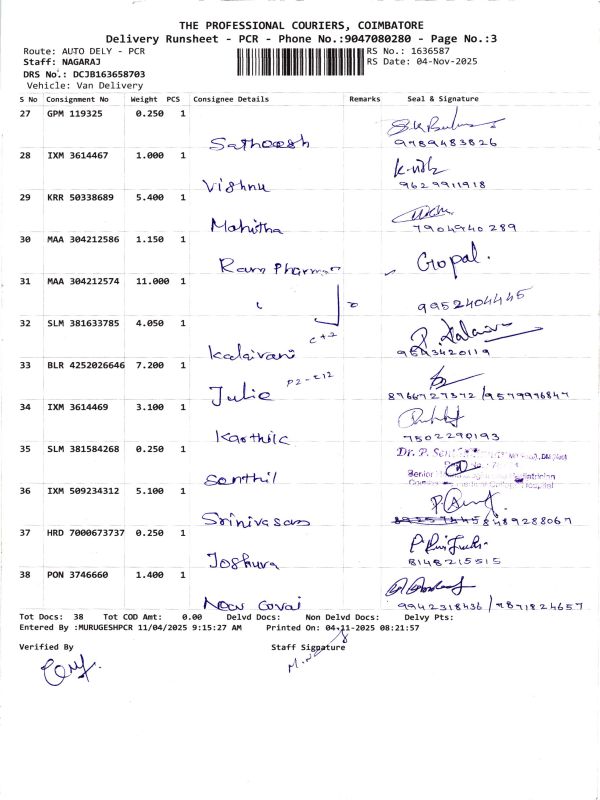 THE PROFESSIONAL COURIERS, COIMBATORE
Delivery Runsheet - PCR - Phone No.:9047080280 - Page No.:3
Route: AUTO DELY - PCR RS No.: 1636587
Staff: NAGARAJ RS Date: 04-Nov-2025
DRS No.: DCJB163658703
Vehicle: Van Delivery
S No Consignment No Weight PCS Consignee Details Remarks Seal & Signature
27 GPM 119325 0.250 1
Sathoesh 9789483826
28 IXM 3614467 1.000 1
Vishnu 9629911918
29 KRR 50338689 5.400 1
Mahitha 7904940289
30 MAA 304212586 1.150 1
Ram Pharma Gopal.
31 MAA 304212574 11.000 1
9952404445
32 SLM 381633785 4.050 1
Kalaivani 9543420119
33 BLR 4252026646 7.200 1
Julie P2-E12 8766727372/9579976847
34 IXM 3614469 3.100 1
Karthik 7502290193
35 SLM 381584268 0.250 1
Senthil Dr. P. Senior Hospital
36 IXM 509234312 5.100 1
Srinivasan 8489288067
37 HRD 7000673737 0.250 1
Joshuva 8148215515
38 PON 3746660 1.400 1
New Covai 9942318436/9871824657
Tot Docs: 38 Tot COD Amt: 0.00 Delvd Docs: Non Delvd Docs: Delvy Pts:
Entered By :MURUGESHPCR 11/04/2025 9:15:27 AM Printed On: 04-11-2025 08:21:57
Verified By Staff Signature